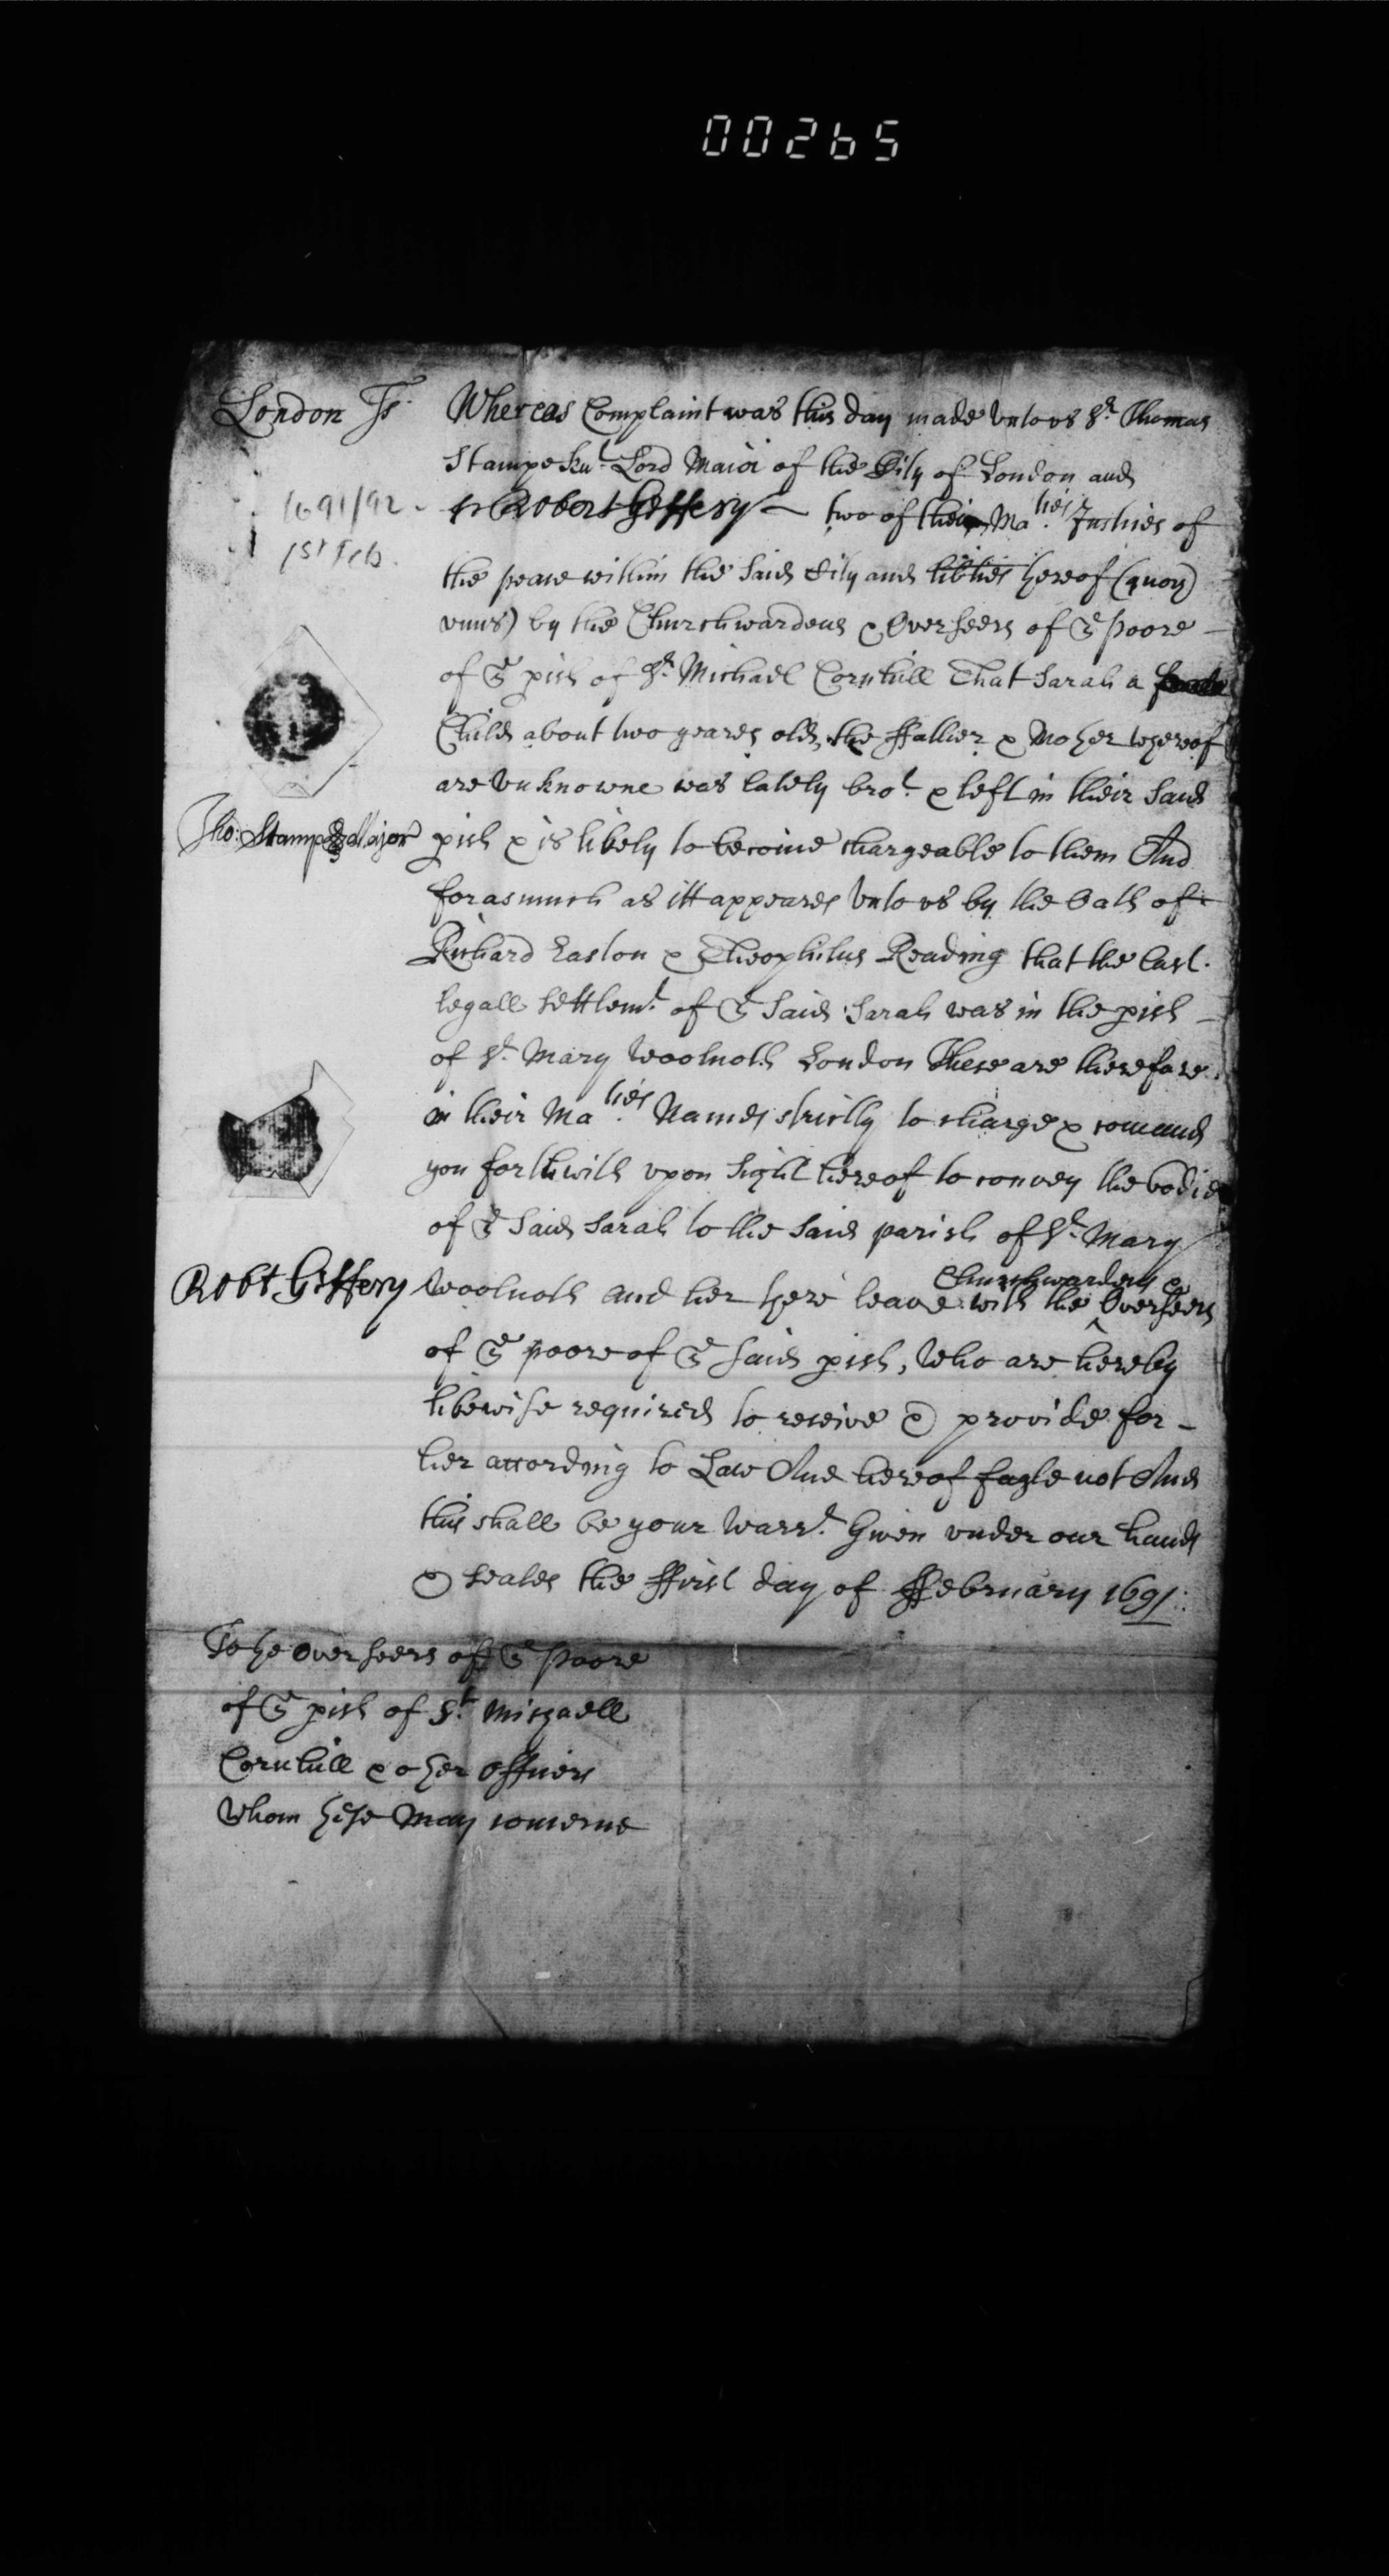 00265
London Ss. Whereas Complaint was this day made Unto us Sr. Thomas
Stampe Knt. Lord Maior of the City of London and
1691/92 - Sr Robert Geffery two of their Maties Justices of
1st Feb.
the peace within the said City and lib̃ties thereof (quor
unus) by the Churchwardens & Overseers of ye poore
of ye pish of St. Michael Cornhill That Sarah a
Child about two yeares old, the ffather & Mother whereof
are Unknowne was lately brot. & left in their said
Tho: Stampe Major
pish & is likely to become chargeable to them And
forasmuch as itt appeares Unto us by the Oath of
Richard Easton & Theophilus Reading that the last
legall Settlemt. of ye said Sarah was in the pish
of St. Mary Woolnoth London These are therefore
in their Maties Names strictly to charge & comand
you forthwith upon sight hereof to convey the bodie
of ye said Sarah to the said parish of St. Mary
Robt. Geffery
Woolnoth and her there leave with the Churchwardens & Overseers
of ye poore of ye said pish, Who are hereby
likewise required to receive & provide for
her according to Law And hereof fayle not And
this shall be your Warrt. Given under our hands
& seales the ffirst day of ffebruary 1691.
To the Overseers of ye Poore
of ye pish of St. Michaell
Cornhill & other Officers
Whom these May concerne